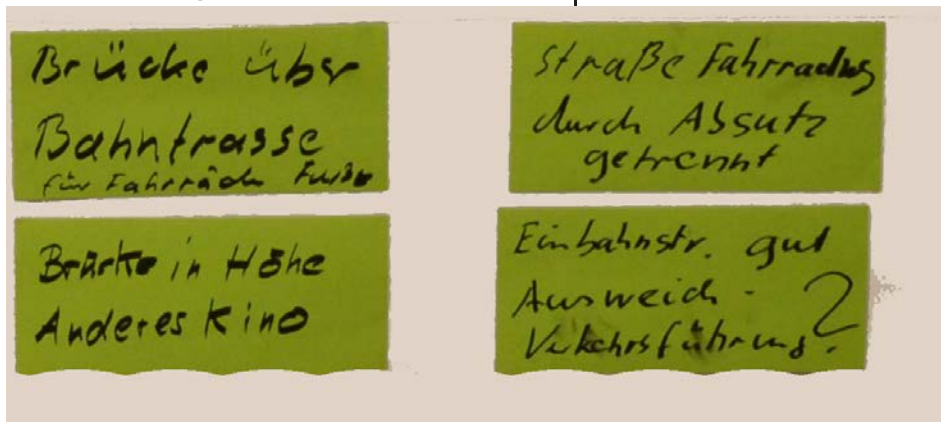 Brücke über
Bahntrasse
für Fahrräder
Brücke in Höhe
Anderes Kino
Straße Fahrradweg
durch Absatz
getrennt
Einbahnstr. gut
Ausweich-
Verkehrsführung?